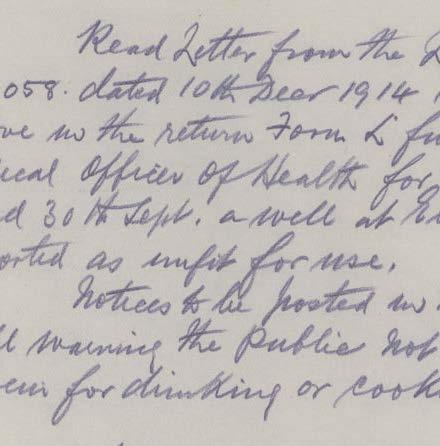 Read Letter from the L
058. dated 10th Decr 1914
ve in the return Form L fu
ical Officer of Health for
d 30th Sept. a well at E
orted as unfit for use.
Notices to be posted in
ll warning the Public not
for drinking or cook